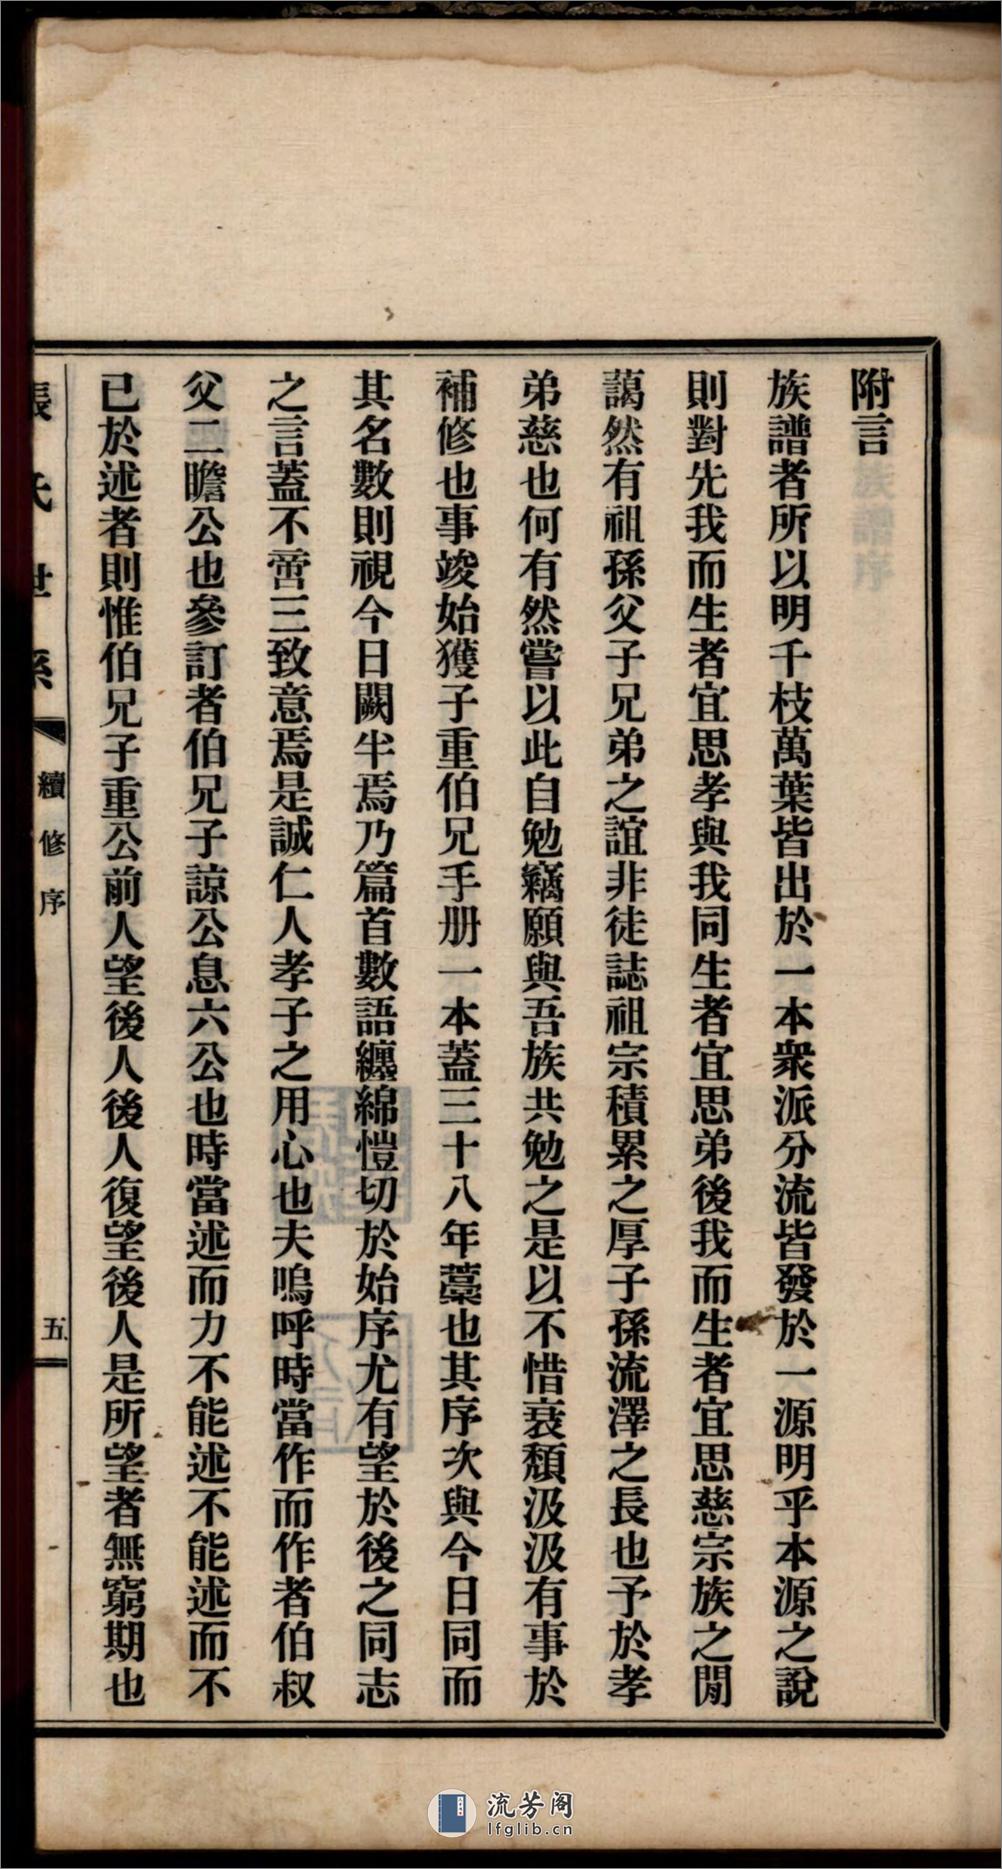 附言
族譜者所以明千枝萬葉皆出於一本衆派分流皆發於一源明乎本源之說
則對先我而生者宜思孝與我同生者宜思弟後我而生者宜思慈宗族之閒
藹然有祖孫父子兄弟之誼非徒誌祖宗積累之厚子孫流澤之長也予於孝
弟慈也何有然嘗以此自勉竊願與吾族共勉之是以不惜衰頹汲汲有事於
補修也事竣始獲子重伯兄手册一本蓋三十八年藁也其序次與今日同而
其名數則視今日闕半焉乃篇首數語纏綿愷切於始序尤有望於後之同志
之言蓋不啻三致意焉是誠仁人孝子之用心也夫嗚呼時當作而作者伯叔
父二瞻公也參訂者伯兄子諒公息六公也時當述而力不能述不能述而不
已於述者則惟伯兄子重公前人望後人後人復望後人是所望者無窮期也
張氏世系 續修序 五
流芳阁
lfglib.cn